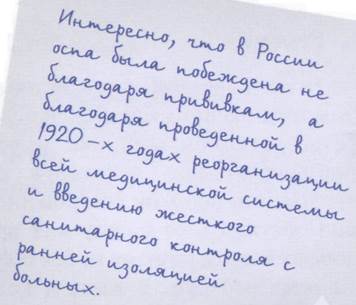 Интересно, что в России
оспа была побеждена не
благодаря прививкам, а
благодаря проведенной в
1920-х годах реорганизации
всей медицинской системы
и введению жесткого
санитарного контроля с
ранней изоляцией
больных.